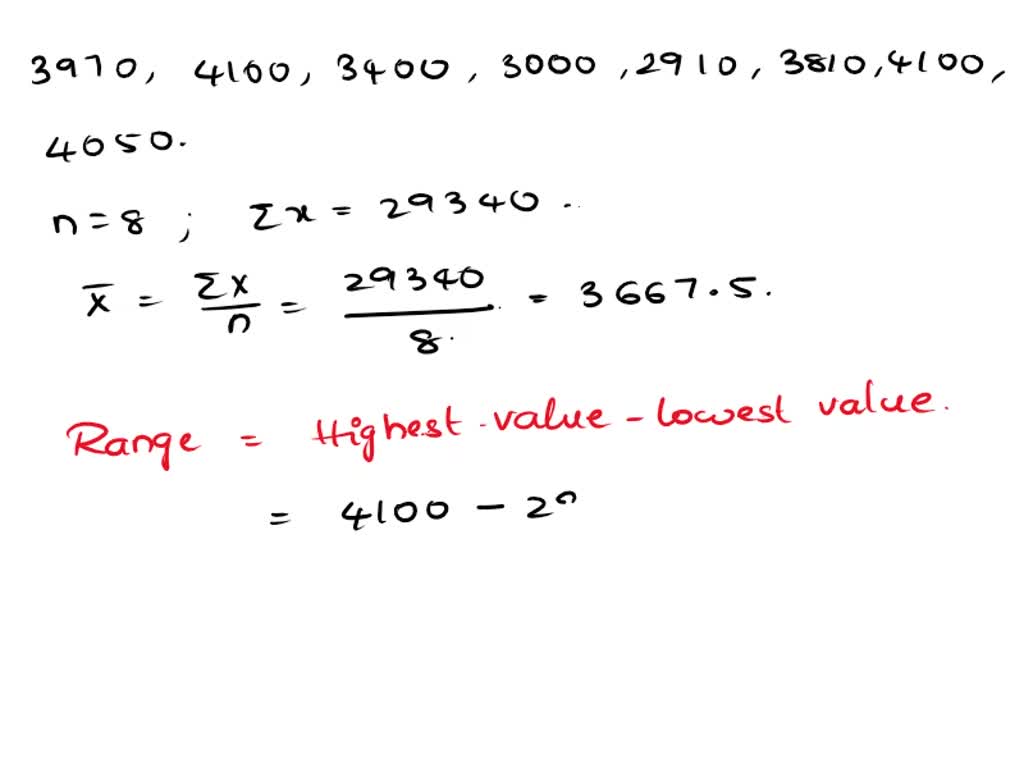 3970, 4100, 3400, 3000, 2910, 3810, 4100,
4050.
n = 8 ; Σx = 29340.
x̄ = Σx/n = 29340/8 = 3667.5.
Range = Highest value - lowest value.
= 4100 - 29